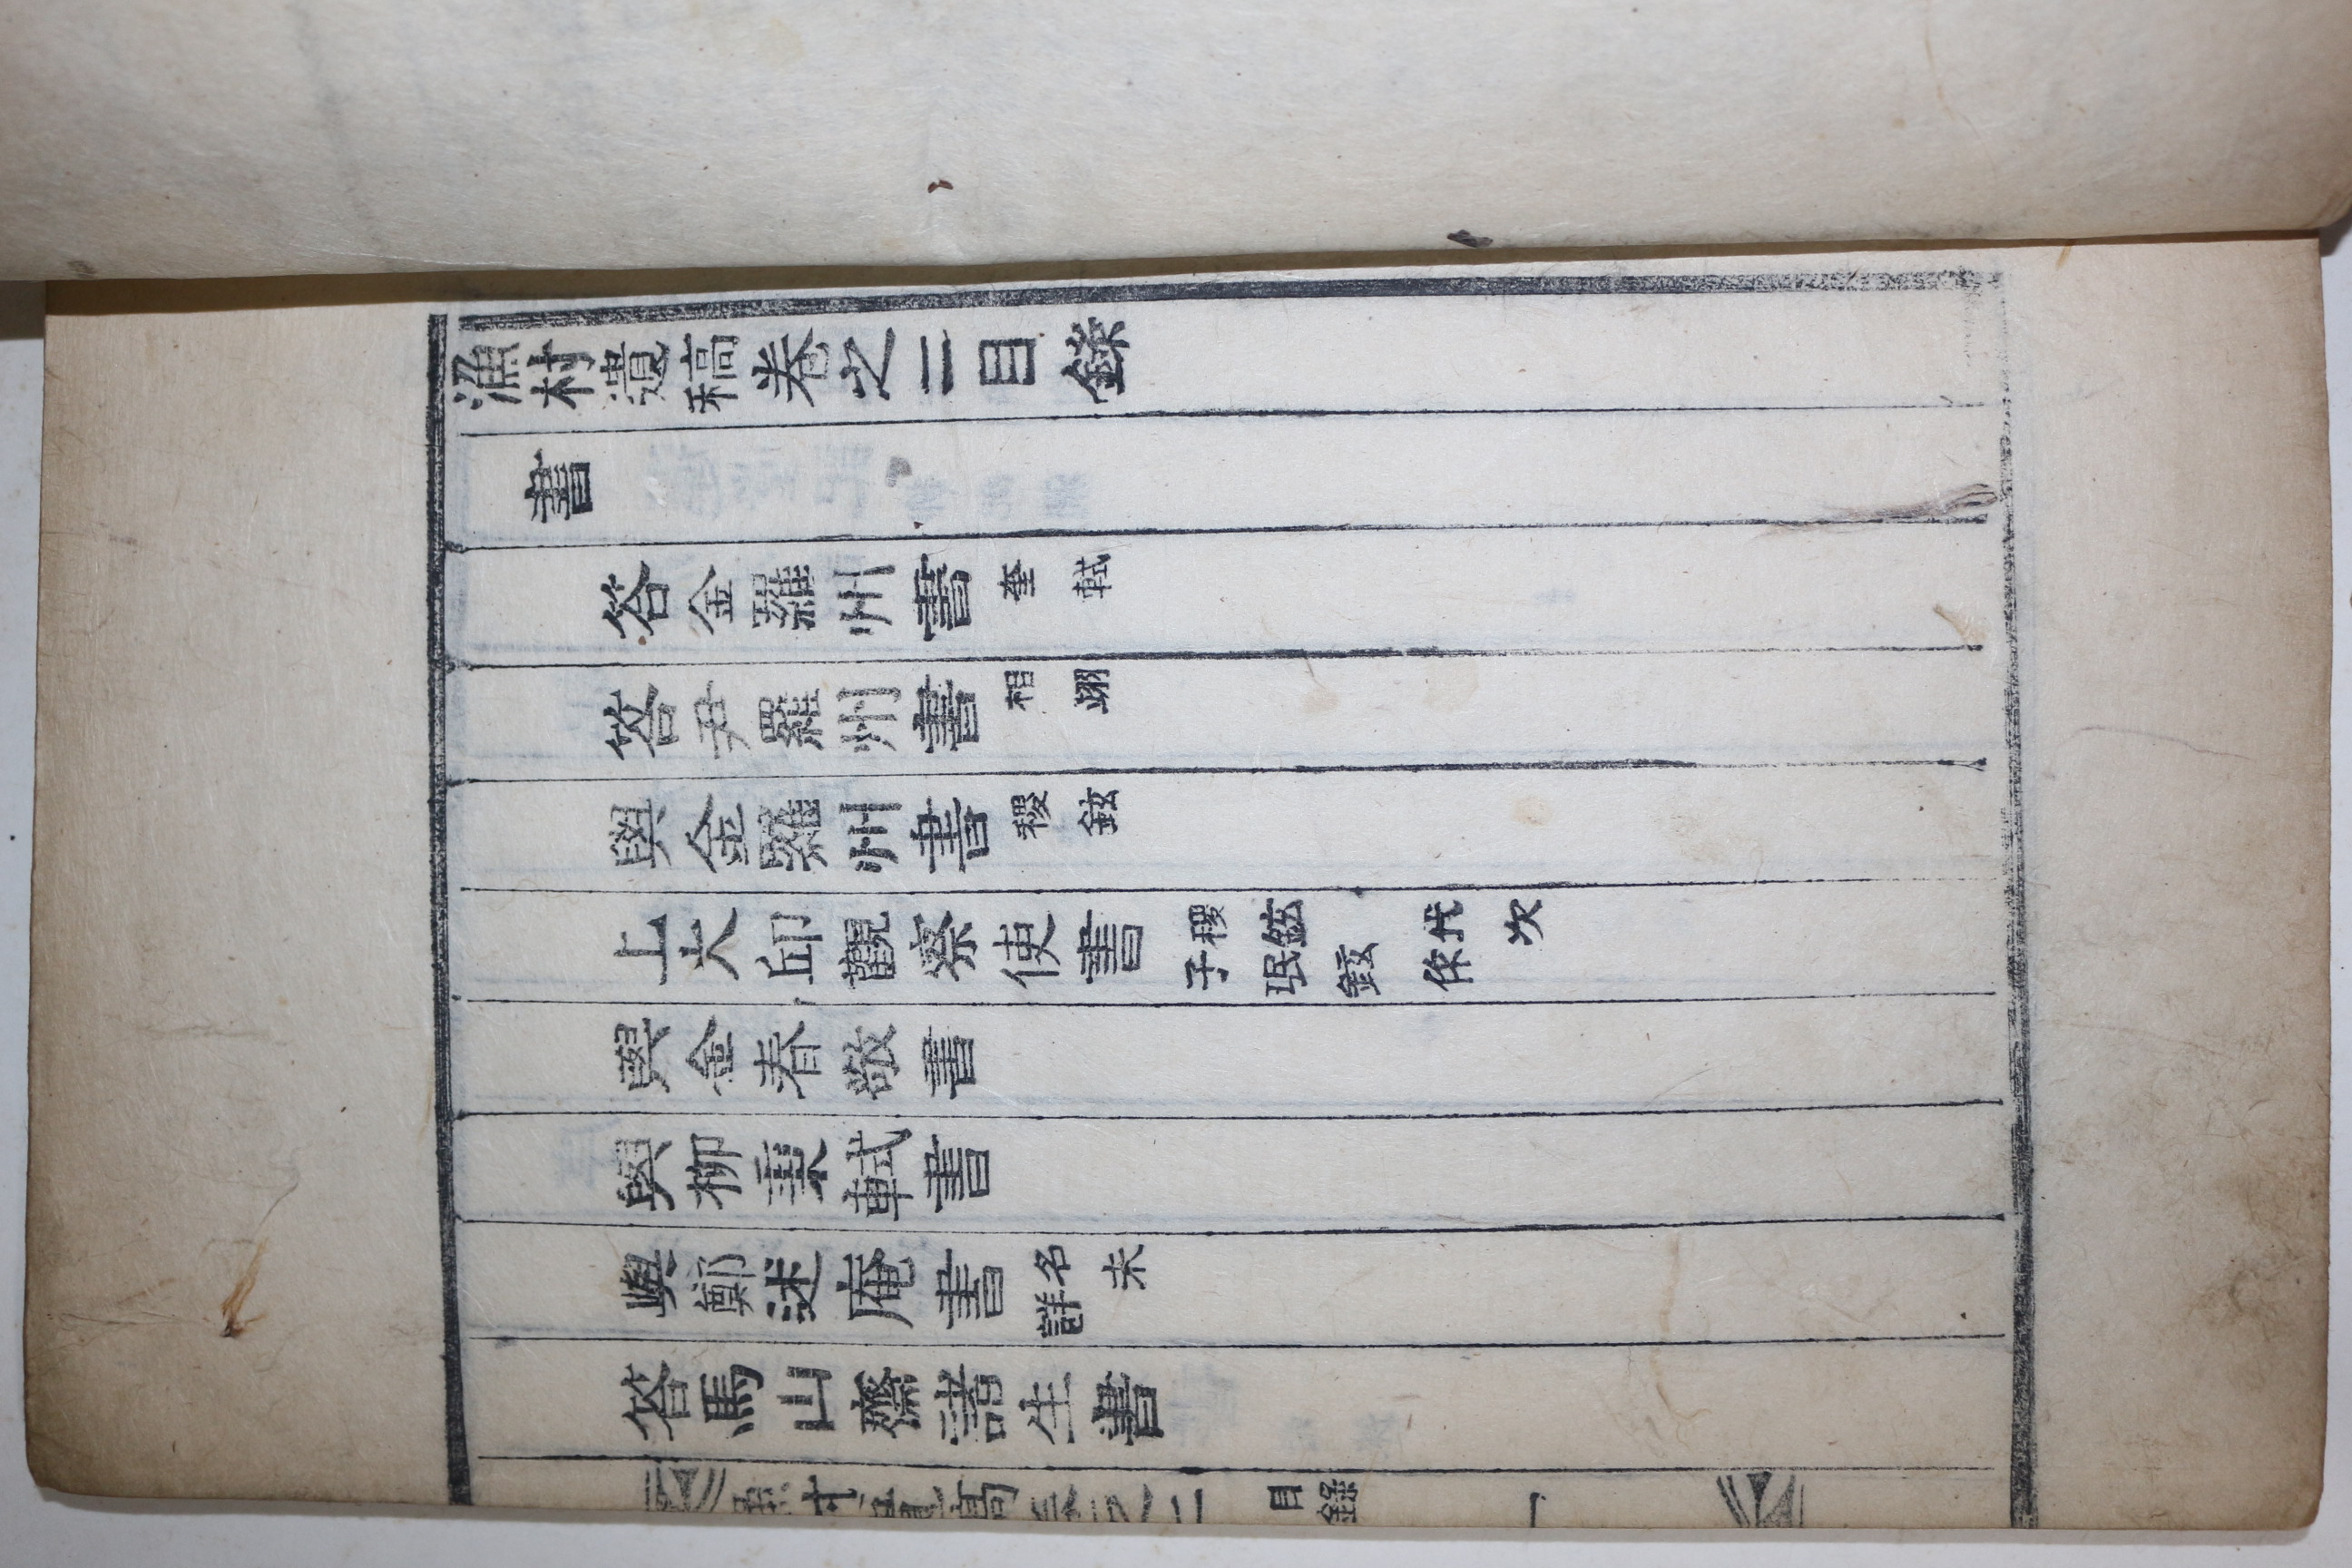 漁村遺稿卷之二目錄
書
答金羅州書 奎軾
答尹羅州書 相翊
與金羅州書 稷鉉
上大邱觀察使書 稷鉉 代次子珉鉉作
與金春敬書
與柳秉軾書
與鄭述庵書 名未詳
答馬山齋諸生書
漁村遺稿卷之二 目錄 一